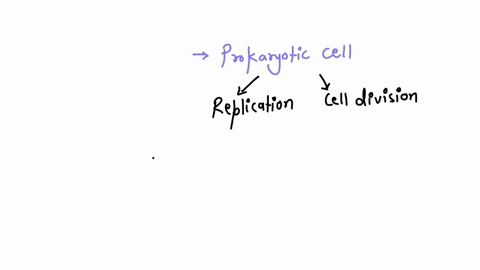 → Prokaryotic cell
Replication cell division